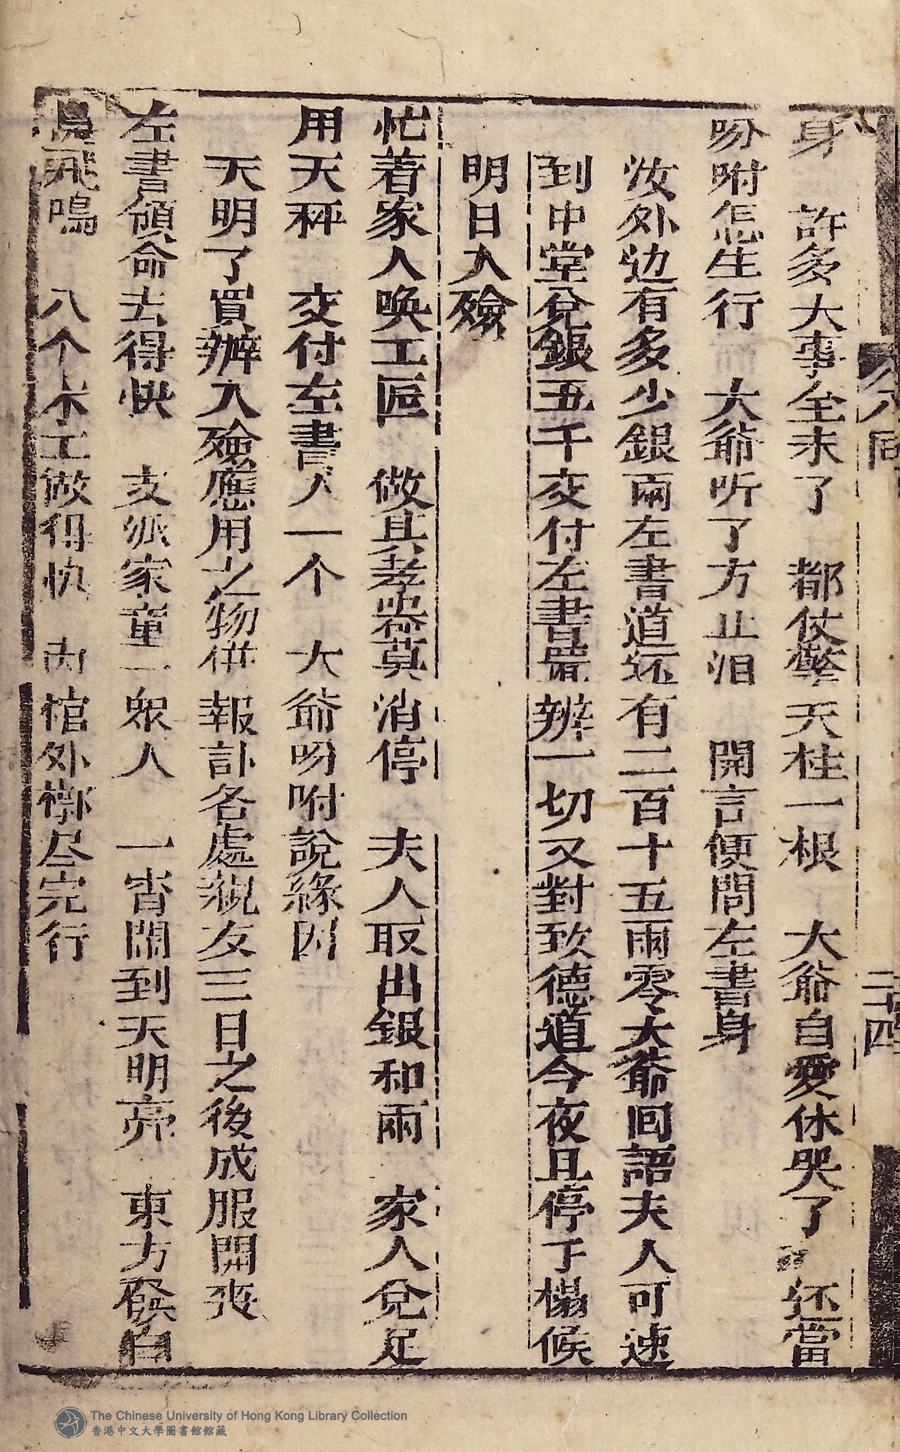 身　許多大事全未了　都仗擎天柱一根　大爺自愛休哭了　还當
吩咐怎生行　大爺听了方止泪　開言便問左書身
汝外边有多少銀兩左書道还有二百十五兩零大爺回語夫人可速
到中堂兌銀五千交付左書備辨一切又對致德道今夜且停于榻候
明日入殮
忙着家人喚工匠　做具孝器莫消停　夫人取出銀和兩　家人兌足
用天秤　交付左書人一个　大爺吩咐說緣因
天明了買辦入殮應用之物供報訃各處親友三日之後成服開喪
左書領命去得快　支派家童一眾人　一宵鬧到天明亮　東方發白
飛鳴　八个木工做得快　內棺外槨尽完行
二十四
The Chinese University of Hong Kong Library Collection
香港中文大學圖書館館藏